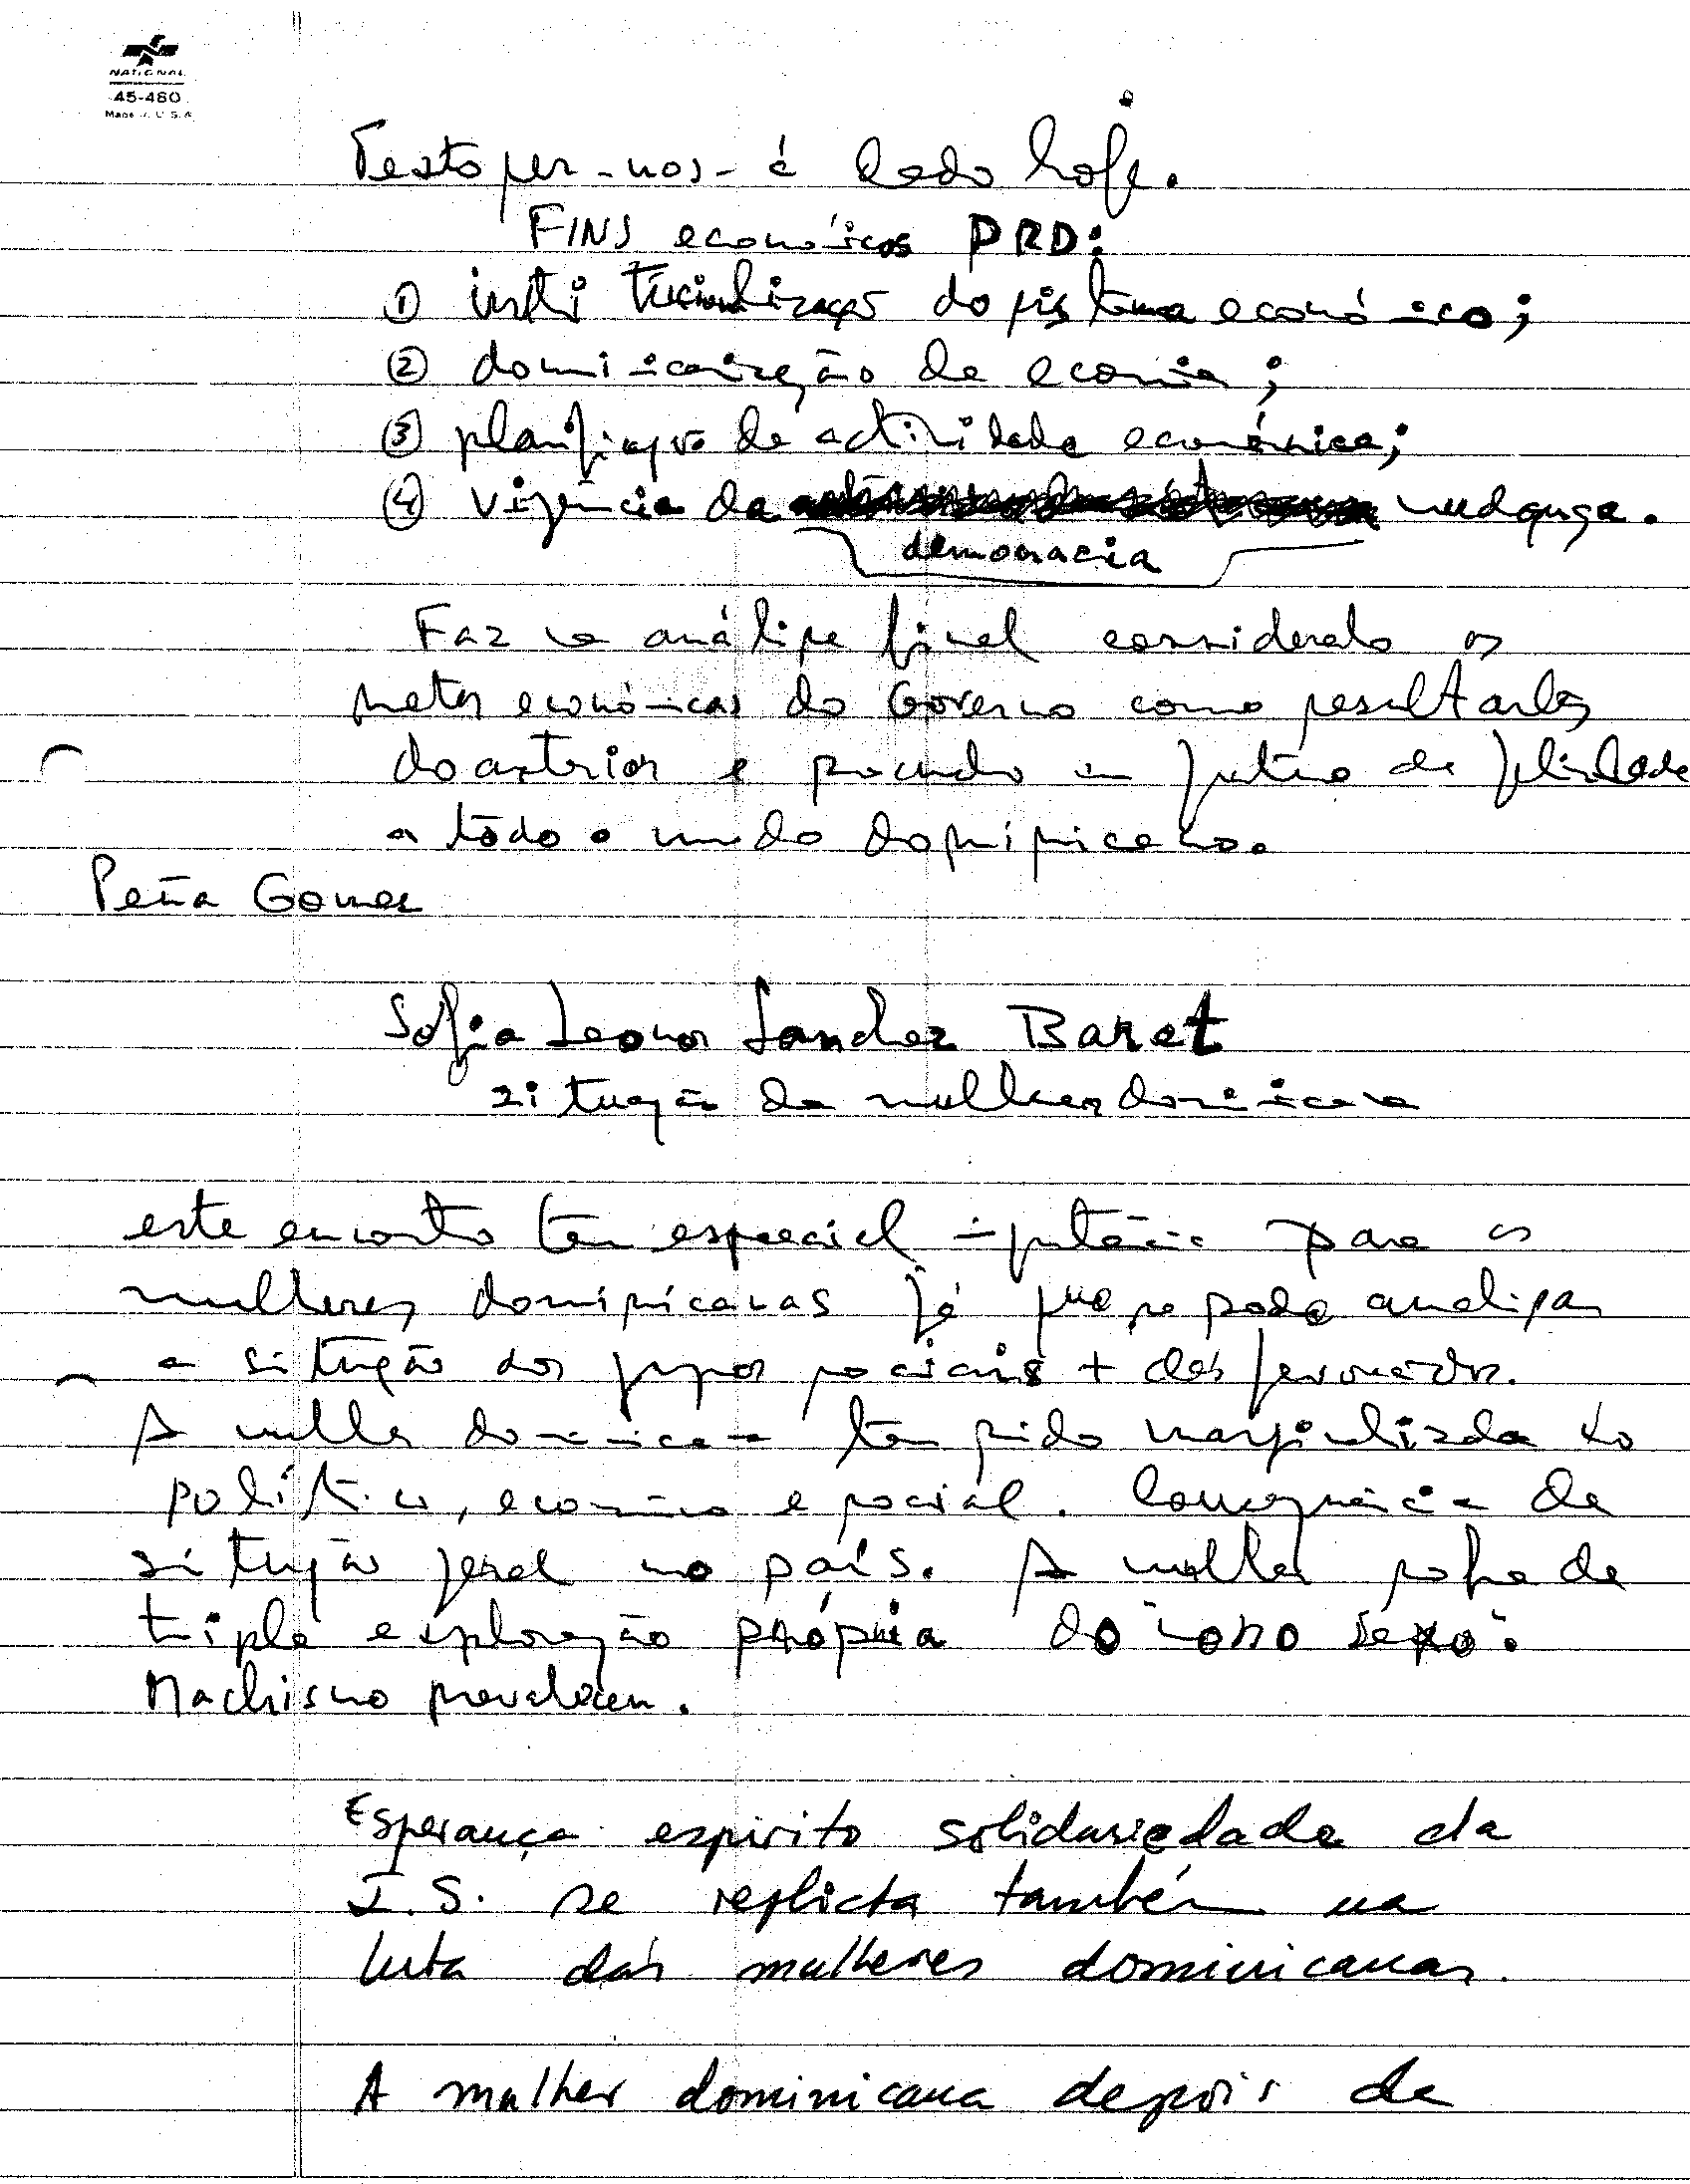 NATIONAL
45-480
Made in U.S.A.
Texto ser-nos-á dado hoje.
FINS económicos PRD:
① institucionalização do sistema económico;
② dominicanização da economia;
③ planificação da actividade económica;
④ vigência da mudança.
democracia
Faz análise final considerando as
metas económicas do Governo como resultantes
do anterior e futuro de felicidade
a todo o mundo dominicano.
Peña Gomez
Sofia Leonor Sanchez Baret
situação da mulher dominicana
este encontro tem especial importância para as
mulheres dominicanas já que se pode analisar
a situação dos grupos sociais + desfavorecidos.
A mulher dominicana tem sido marginalizada no
político, económico e social. Consequência da
situação geral no país. A mulher sofre de
tripla exploração própria do sexo.
Machismo prevalecem.
Esperança espirito solidariedade da
I.S. se replicta também na
luta das mulheres dominicanas.
A mulher dominicana depois de